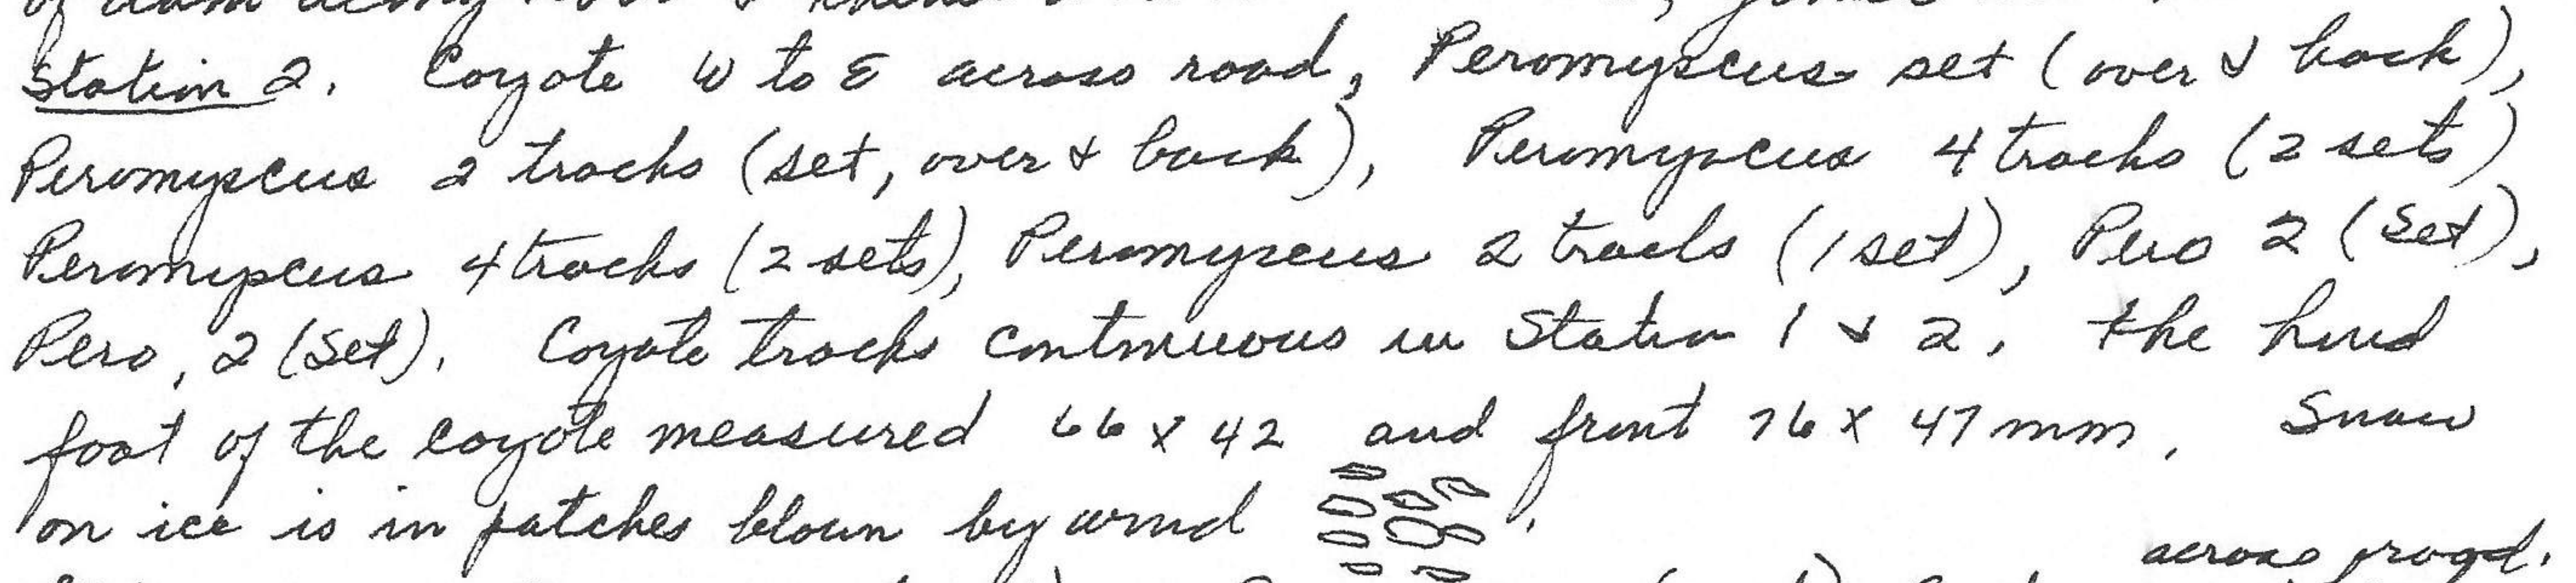 Station 2. Coyote W to E across road, Peromyscus set (over & back),
Peromyscus 2 tracks (set, over & back), Peromyscus 4 tracks (2 sets)
Peromyscus 4 tracks (2 sets), Peromyscus 2 tracks (1 set), Pero 2 (Set),
Pero, 2 (Set). Coyote tracks continuous in Station 1 & 2. the hind
foot of the coyote measured 66 x 42 and front 76 x 47 mm. Snow
on ice is in patches blown by wind .
across